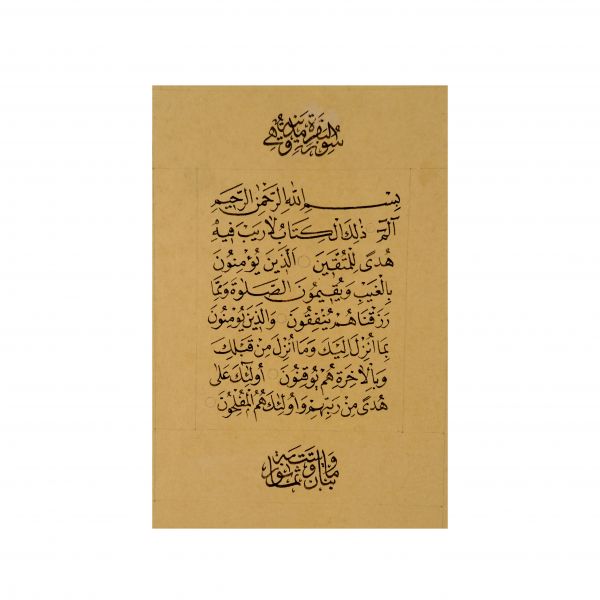 سورة البقرة مدنية وهي
بسم الله الرحمن الرحيم
الٓمٓ ذلك الكتاب لا ريب فيه
هُدًى لِلْمُتَّقِينَ الَّذِينَ يُؤْمِنُونَ
بِالْغَيْبِ وَيُقِيمُونَ الصَّلٰوةَ وَمِمَّا
رَزَقْنَاهُمْ يُنْفِقُونَ وَالَّذِينَ يُؤْمِنُونَ
بِمَا أُنْزِلَ إِلَيْكَ وَمَا أُنْزِلَ مِنْ قَبْلِكَ
وَبِالْآخِرَةِ هُمْ يُوقِنُونَ أُولٰئِكَ عَلٰى
هُدًى مِنْ رَبِّهِمْ وَأُولٰئِكَ هُمُ الْمُفْلِحُونَ
مائتان وست وثمانون آية